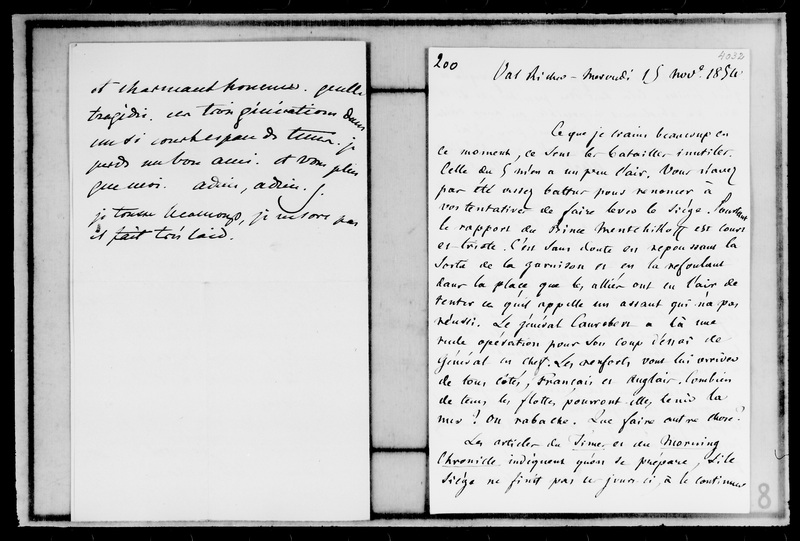 et charmant homme. quelle
tragédie. ces trois générations dans
un si court espace de tems. je
perds un bon ami. et vous plus
que moi. adieu, adieu.
je tousse beaucoup, je ne sors pas
il fait très laid.
200
4032
Val Richer - Mercredi 15 nov.e 1854
Ce que je crains beaucoup en
ce moment, ce sont les batailles inutiles.
Celle du 5 m'en a un peu l'air. Vous n'avez
pas été assez battus pour renoncer à
vos tentatives de faire lever le siège. Pourtant
le rapport du Prince Mentchikoff est court
et triste. C'est sans doute en repoussant la
sortie de la garnison et en la refoulant
dans la place que les alliés ont eu l'air de
tenter ce qu'il appelle un assaut qui n'a pas
réussi. Le général Canrobert a là une
rude opération pour son coup d'essai de
Général en chef. Les renforts vont lui arriver
de tous côtés, Français et Anglais. Combien
de tems les flottes pourront-elles tenir la
mer ? On rabache. Que faire autre chose ?
Les articles du Times et du Morning
Chronicle indiquent qu'on se prépare, si le
Siège ne finit pas ces jours-ci, à le continuer
8